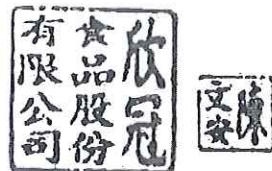 欣冠
食品股份
有限公司
陳
文安